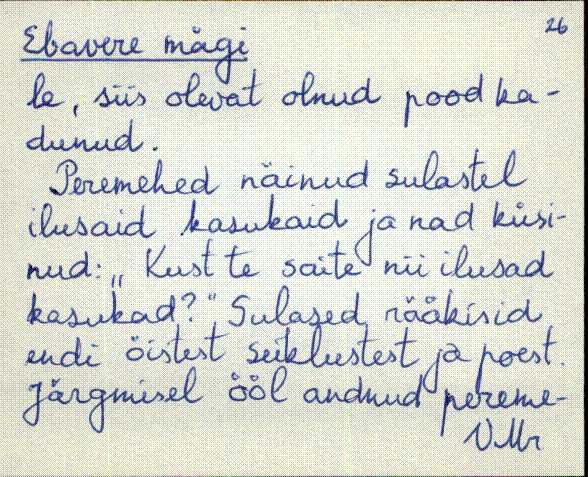 26
Ebavere mägi
le, siis olevat olnud pood ka-
dunud.
Peremehed näinud sulastel
ilusaid kasukaid ja nad küsi-
nud: „Kust te saite nii ilusad
kasukad?" Sulased rääkisid
endi öistest seiklustest ja poest.
Järgmisel ööl andnud pereme-
V Mr